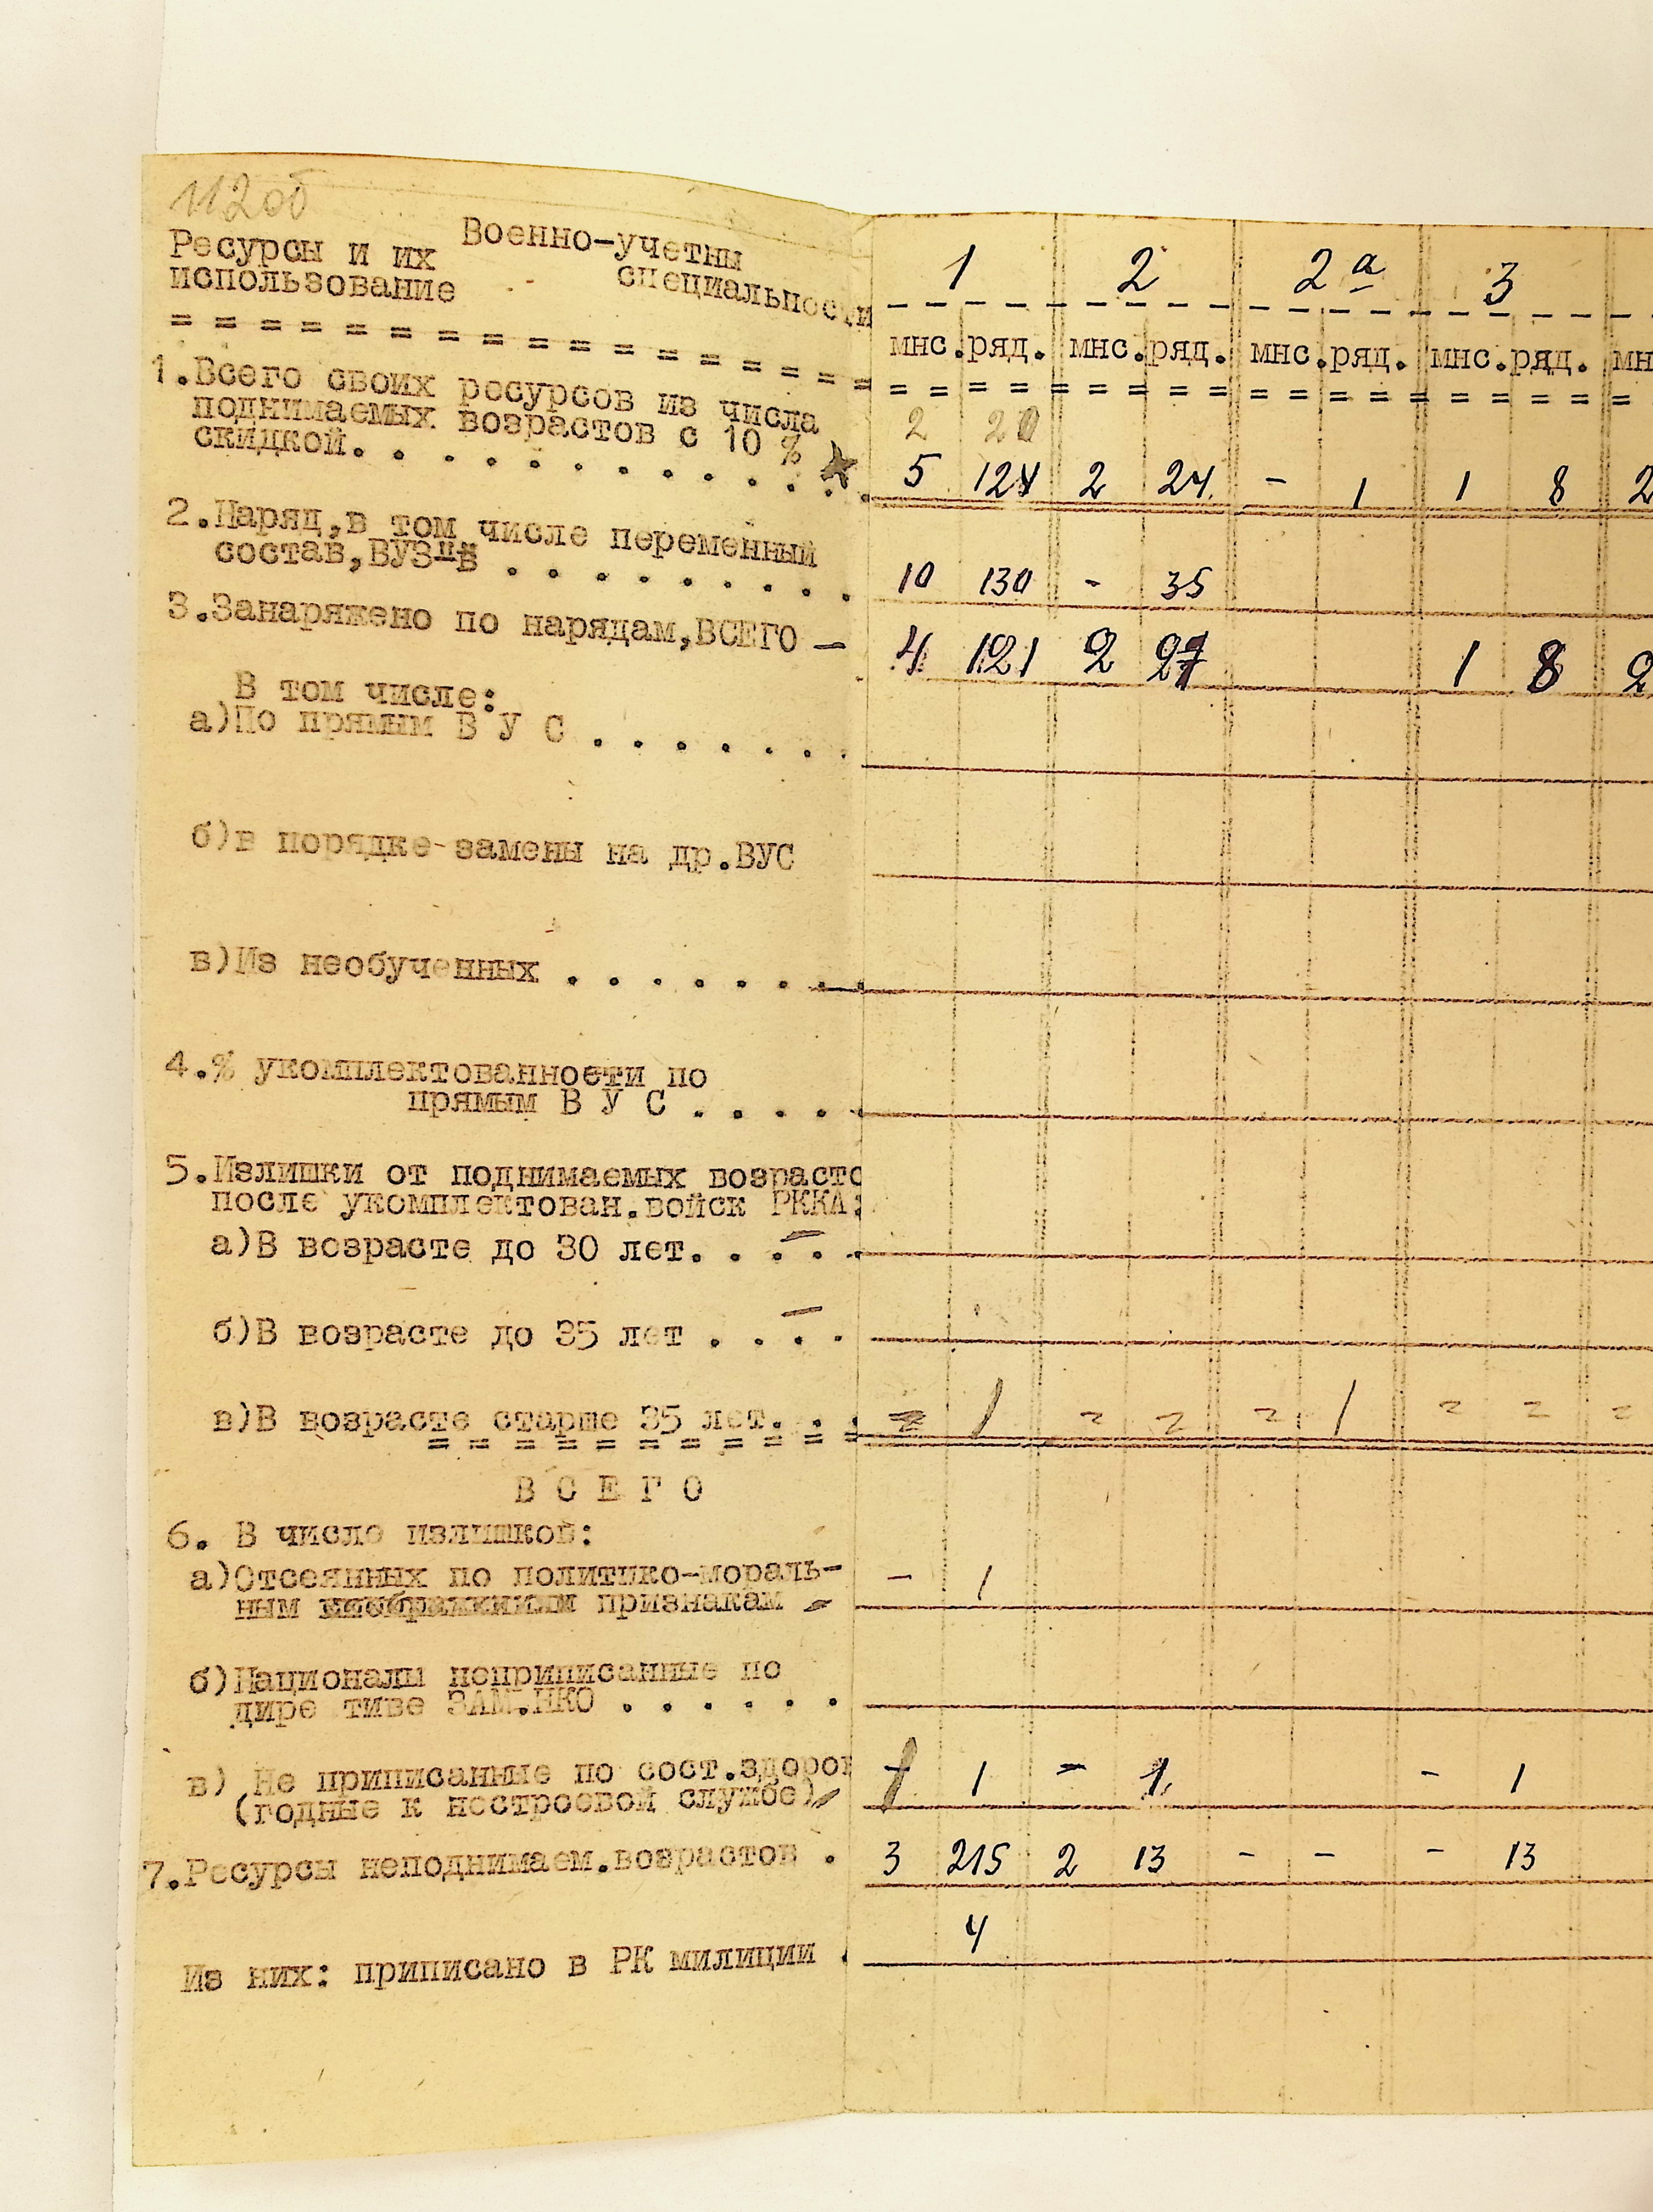 112об
Военно-учетны
Ресурсы и их
специальности
использование
1 2 2а 3
мнс. ряд. мнс. ряд. мнс. ряд. мнс. ряд. мн
= = = = = = = = = = = = = = = =
1.Всего своих ресурсов из числа
поднимаемых возрастов с 10 %
2 20
скидкой. . . . . . . . . . . . . 5 124 2 24 - 1 1 8 2
2.Наряд,в том числе переменный
состав,ВУЗ . . . . . . . . . 10 130 - 35
3.Занаряжено по нарядам,ВСЕГО — 4 121 2 27 1 8 2
В том числе:
а)По прямым В У С . . . . . . .
б)в порядке-замены на др.ВУС
в)Из необученных . . . . . . .
4.% укомплектованности по
прямым В У С . . . . .
5.Излишки от поднимаемых возрасто
после укомплектован.войск РККА:
а)В возрасте до 30 лет. . . . .
б)В возрасте до 35 лет . . . .
в)В возрасте старше 35 лет. . . = 1 = = = 1 = = =
= = = = = = = = = =
В С Е Г О
6. В число излишков:
а)Отсеянных по политико-мораль- - 1
ным признакам
б)Националы неприписанные по
дире тиве ЗАМ.НКО . . . . . .
в) Не приписанные по сост.здоров
(годные к нестроевой службе) 1 - 1 - 1
7.Ресурсы неподнимаем.возрастов . 3 215 2 13 - - - 13
4
Из них: приписано в РК милиции .